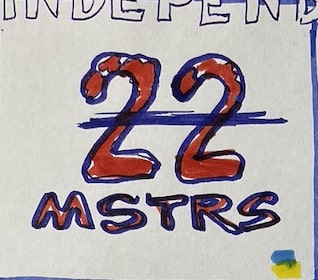 INDEPEND
22
MSTRS